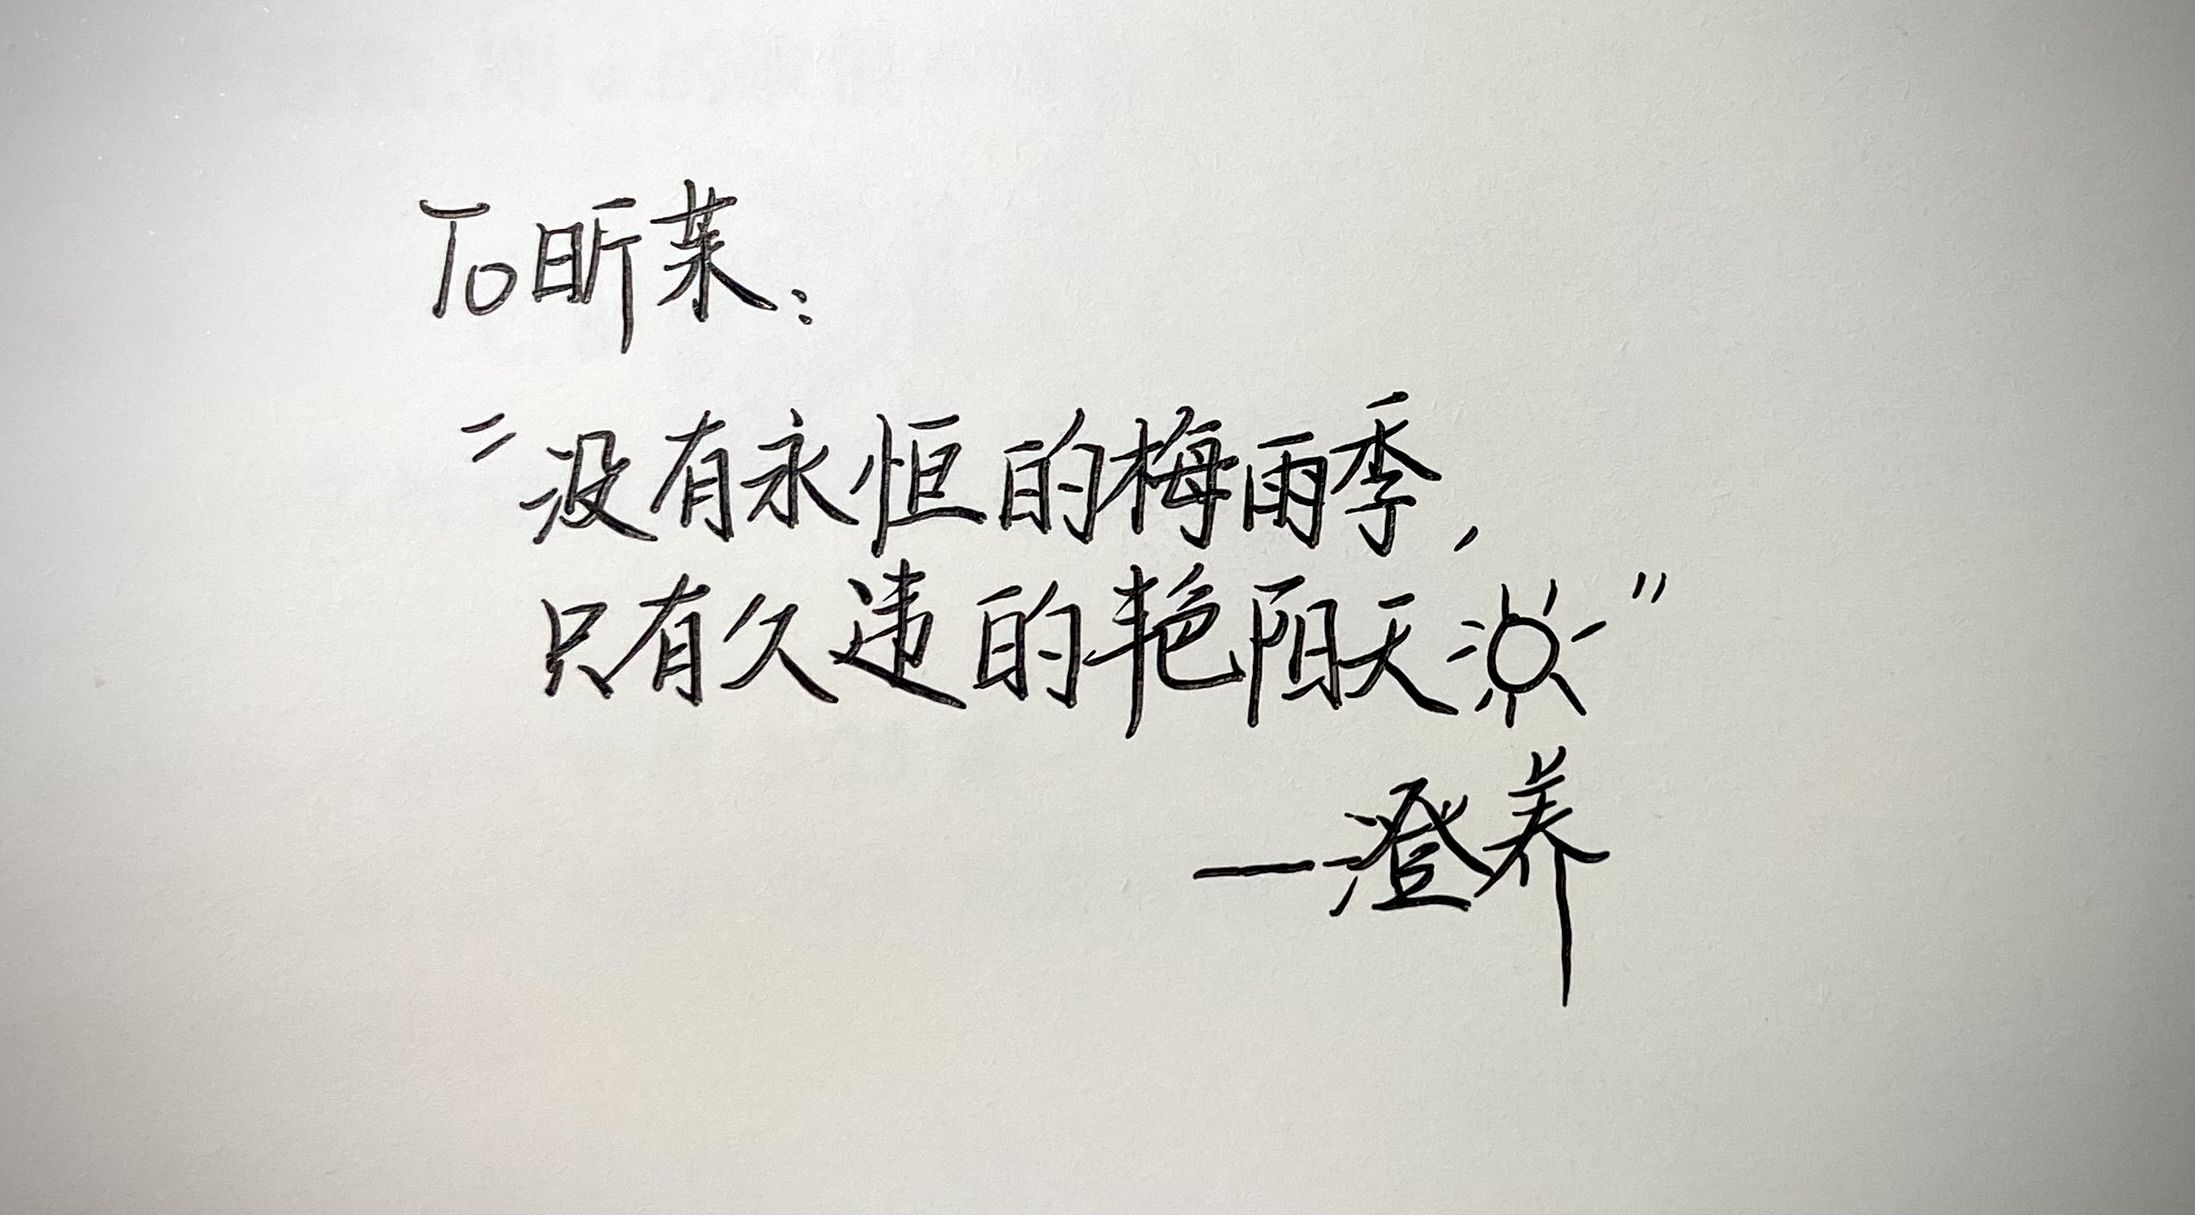 To昕茉:
“没有永恒的梅雨季,
只有久违的艳阳天”
—澄养